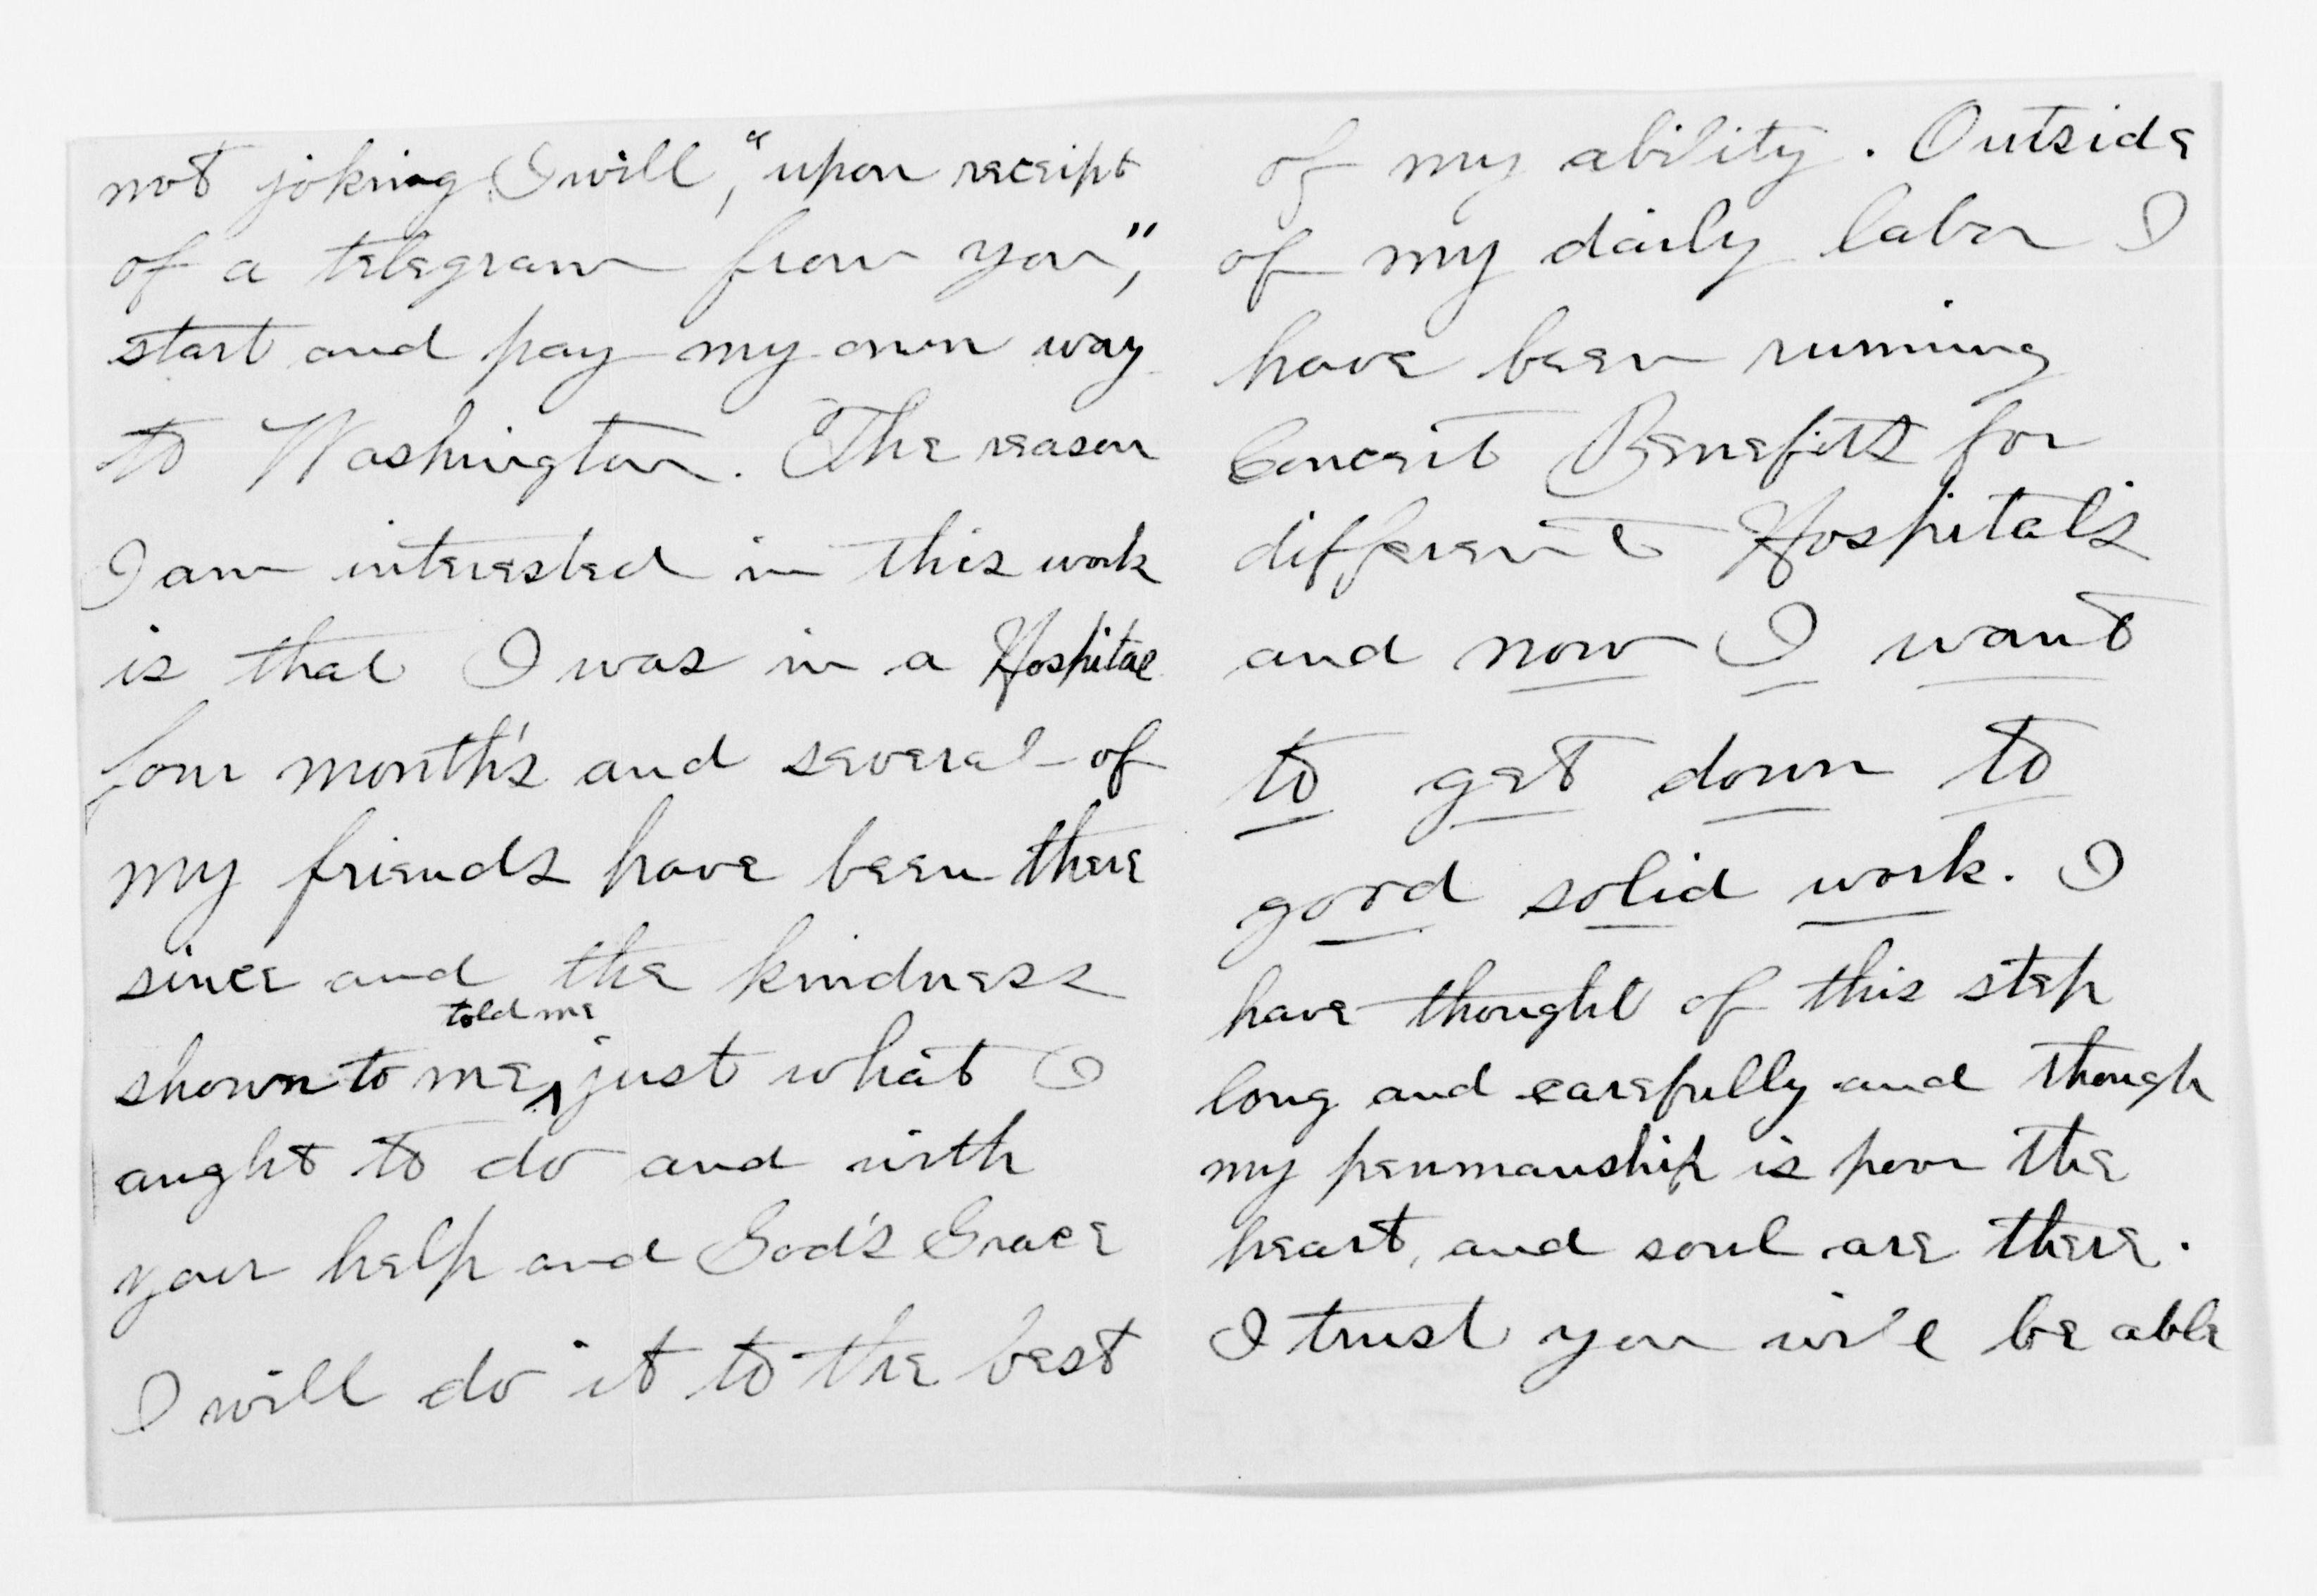 not joking I will, "upon receipt
of a telegram from you",
start and pay my own way
to Washington. The reason
I am interested in this work
is that I was in a Hospital
four month's and several of
my friend's have been there
since and the kindness
told me
shown to me ^ just what I
aught to do and with
your help and God's Grace
I will do it to the best
of my ability. Outside
of my daily labor I
have been running
Concert Benefits for
different Hospital's
and now I want
to get down to
good solid work. I
have thought of this step
long and carefully and though
my penmanship is poor the
heart, and soul are there.
I trust you will be able